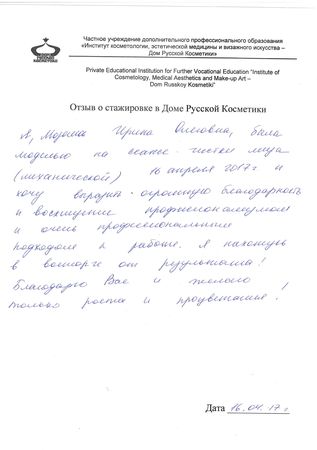 Частное учреждение дополнительного профессионального образования
«Институт косметологии, эстетической медицины и визажного искусства –
Дом Русской Косметики»
Private Educational Institution for Further Vocational Education "Institute of
Cosmetology, Medical Aesthetics and Make-up Art –
Dom Russkoy Kosmetiki"
Отзыв о стажировке в Доме Русской Косметики
Я, Ирина Олеговна, была
моделью на сеансе чистки лица
(механической) 16 апреля 2017 г и
хочу выразить огромную благодарность
и восхищение профессионализмом
и очень профессиональным
подходом к работе. Я нахожусь
в восторге от результата!
Благодарю Вас и желаю
только роста и процветания!
Дата 16.04.17 г.